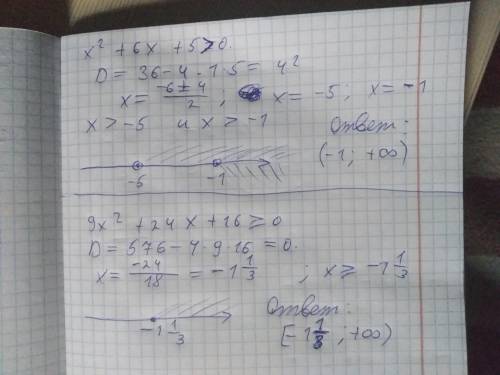 x² + 6x + 5 > 0.
D = 36 - 4 · 1 · 5 = 4²
x = (-6 ± 4)/2 ; x = -5 ; x = -1
x > -5 и x > -1
Ответ:
(-1; +∞)
-5 -1
9x² + 24x + 16 ≥ 0
D = 576 - 4 · 9 · 16 = 0.
x = -24/18 = -1 1/3 ; x ≥ -1 1/3
Ответ:
[-1 1/3 ; +∞)
-1 1/3